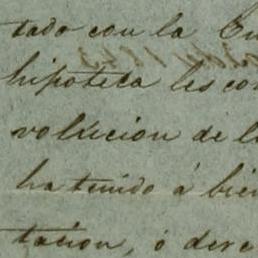 tado con la
hipoteca les con
volucion de l
ha tenido á bien
tacion, ó dere